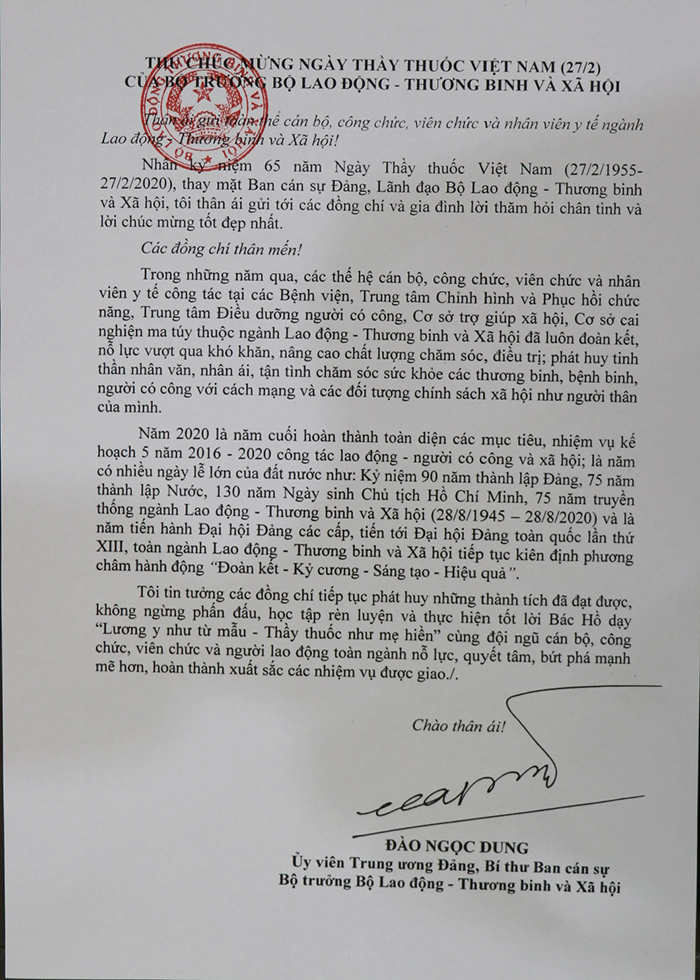 THƯ CHÚC MỪNG NGÀY THẦY THUỐC VIỆT NAM (27/2)
CỦA BỘ TRƯỞNG BỘ LAO ĐỘNG - THƯƠNG BINH VÀ XÃ HỘI
Thân ái gửi toàn thể cán bộ, công chức, viên chức và nhân viên y tế ngành
Lao động - Thương binh và Xã hội!
Nhân kỷ niệm 65 năm Ngày Thầy thuốc Việt Nam (27/2/1955-
27/2/2020), thay mặt Ban cán sự Đảng, Lãnh đạo Bộ Lao động - Thương binh
và Xã hội, tôi thân ái gửi tới các đồng chí và gia đình lời thăm hỏi chân tình và
lời chúc mừng tốt đẹp nhất.
Các đồng chí thân mến!
Trong những năm qua, các thế hệ cán bộ, công chức, viên chức và nhân
viên y tế công tác tại các Bệnh viện, Trung tâm Chỉnh hình và Phục hồi chức
năng, Trung tâm Điều dưỡng người có công, Cơ sở trợ giúp xã hội, Cơ sở cai
nghiện ma túy thuộc ngành Lao động - Thương binh và Xã hội đã luôn đoàn kết,
nỗ lực vượt qua khó khăn, nâng cao chất lượng chăm sóc, điều trị; phát huy tinh
thần nhân văn, nhân ái, tận tình chăm sóc sức khỏe các thương binh, bệnh binh,
người có công với cách mạng và các đối tượng chính sách xã hội như người thân
của mình.
Năm 2020 là năm cuối hoàn thành toàn diện các mục tiêu, nhiệm vụ kế
hoạch 5 năm 2016 - 2020 công tác lao động - người có công và xã hội; là năm
có nhiều ngày lễ lớn của đất nước như: Kỷ niệm 90 năm thành lập Đảng, 75 năm
thành lập Nước, 130 năm Ngày sinh Chủ tịch Hồ Chí Minh, 75 năm truyền
thống ngành Lao động - Thương binh và Xã hội (28/8/1945 – 28/8/2020) và là
năm tiến hành Đại hội Đảng các cấp, tiến tới Đại hội Đảng toàn quốc lần thứ
XIII, toàn ngành Lao động - Thương binh và Xã hội tiếp tục kiên định phương
châm hành động "Đoàn kết - Kỷ cương - Sáng tạo - Hiệu quả".
Tôi tin tưởng các đồng chí tiếp tục phát huy những thành tích đã đạt được,
không ngừng phấn đấu, học tập rèn luyện và thực hiện tốt lời Bác Hồ dạy
“Lương y như từ mẫu - Thầy thuốc như mẹ hiền” cùng đội ngũ cán bộ, công
chức, viên chức và người lao động toàn ngành nỗ lực, quyết tâm, bứt phá mạnh
mẽ hơn, hoàn thành xuất sắc các nhiệm vụ được giao./.
Chào thân ái!
ĐÀO NGỌC DUNG
Ủy viên Trung ương Đảng, Bí thư Ban cán sự
Bộ trưởng Bộ Lao động - Thương binh và Xã hội